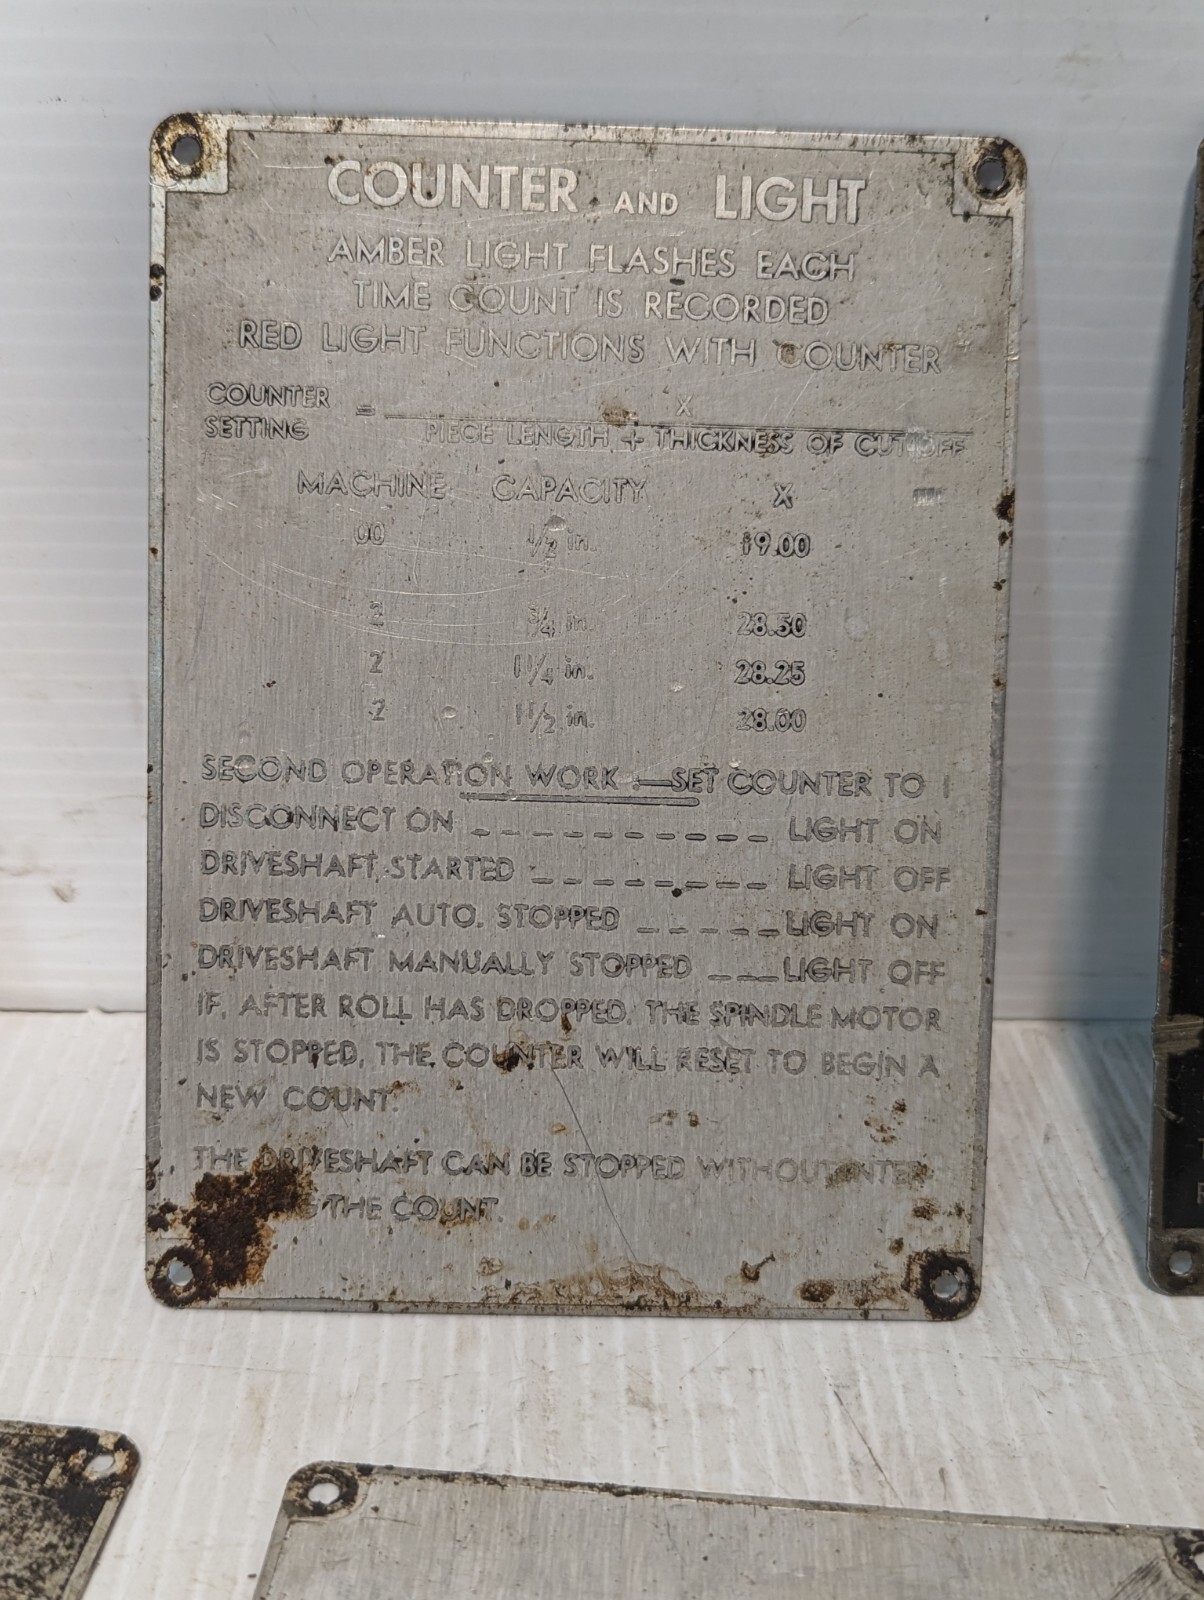 COUNTER AND LIGHT
AMBER LIGHT FLASHES EACH
TIME COUNT IS RECORDED
RED LIGHT FUNCTIONS WITH COUNTER
COUNTER SETTING = X
PIECE LENGTH + THICKNESS OF CUTOFF
MACHINE CAPACITY X
00 1/2 in. 19.00
2 3/4 in. 28.50
2 1 1/4 in. 28.25
2 1 1/2 in. 28.00
SECOND OPERATION WORK :—SET COUNTER TO 1
DISCONNECT ON _ _ _ _ _ _ _ _ _ _ LIGHT ON
DRIVESHAFT STARTED _ _ _ _ _ _ _ _ LIGHT OFF
DRIVESHAFT AUTO. STOPPED _ _ _ _ _ LIGHT ON
DRIVESHAFT MANUALLY STOPPED _ _ _ LIGHT OFF
IF, AFTER ROLL HAS DROPPED, THE SPINDLE MOTOR
IS STOPPED, THE COUNTER WILL RESET TO BEGIN A
NEW COUNT.
THE DRIVESHAFT CAN BE STOPPED WITHOUT INTER-
G THE COUNT.